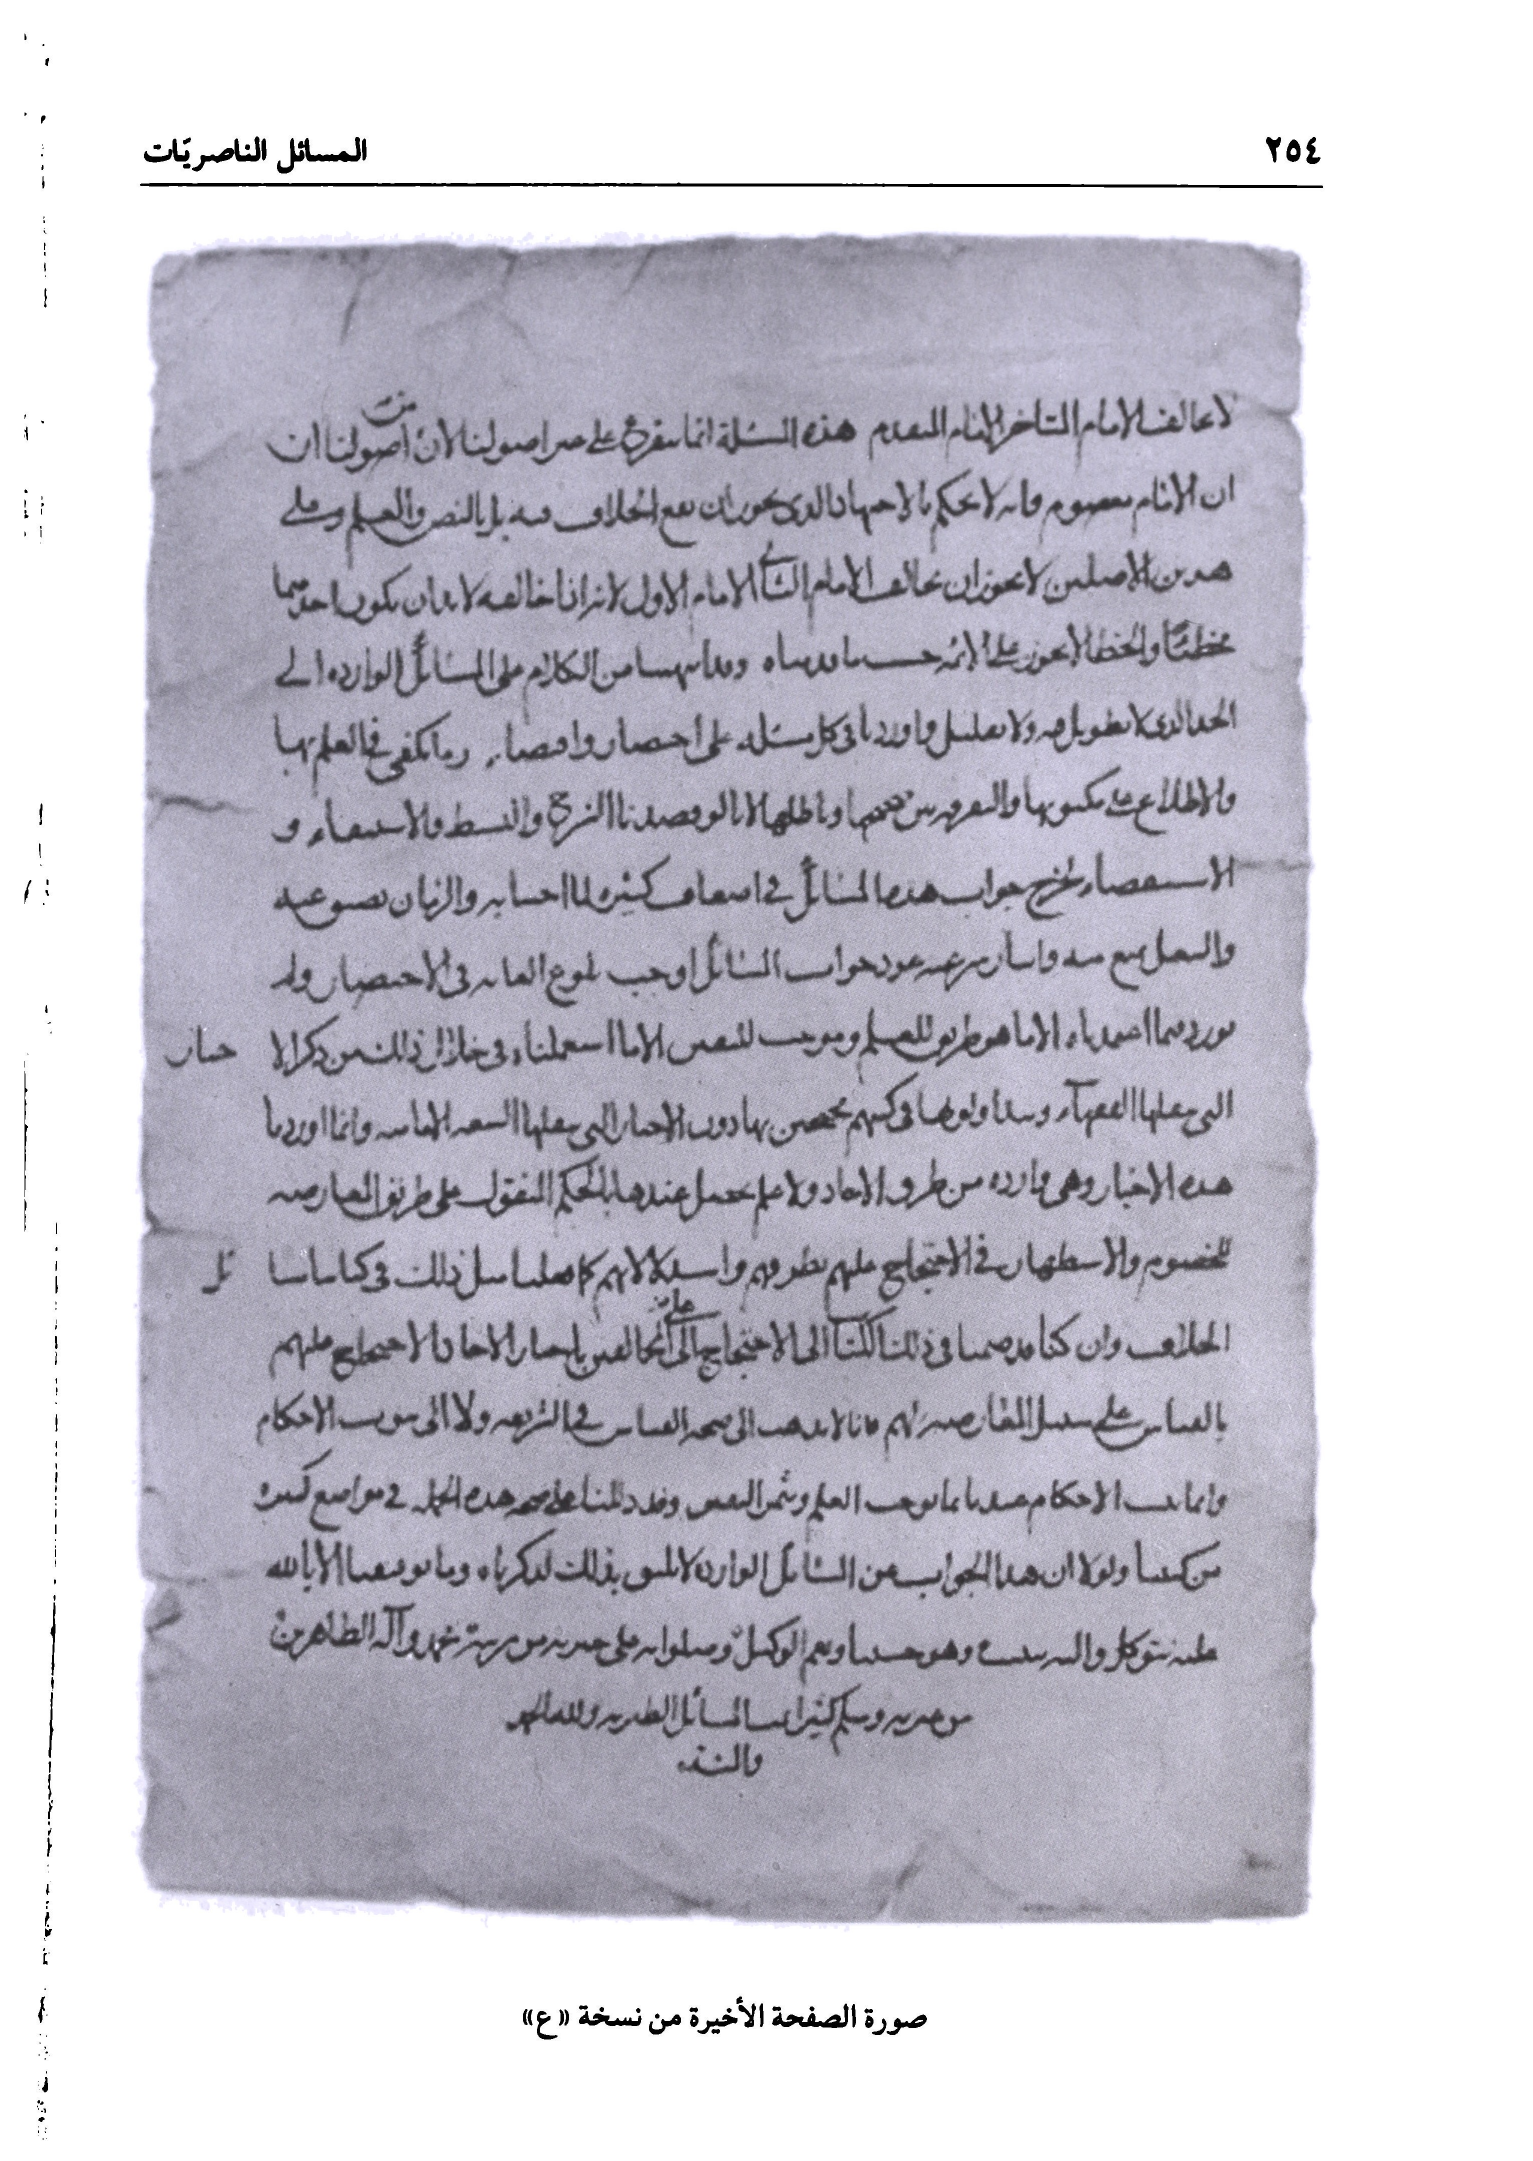 ٢٥٤
المسائل الناصريّات
لا يخالف الامام المتاخر الامام المتقدم هذه المسئلة انما تتفرع على غير اصولنا لان من اصولنا ان
ان الامام معصوم وانه لا يحكم بالاجتهاد الذى يجوز ان يقع الخلاف فيه بل بالنص والعلم وعلى
هذين الاصلين لا يجوز ان يخالف الامام الثانى الامام الاول لانه اذا خالفه لا بد ان يكون احدهما
مخطئا والخطا لا يجوز على الائمه حسب ما قدمناه وقد انتهينا من الكلام على المسائل الوارده الى
الحد الذى لا تطويل فيه ولا تقليل واوردنا فى كل مسئله على اختصار واقتصار ما يكفى فى العلم بها
والاطلاع على مكنونها والتفرقه بين صحيحها وباطلها لانا لو قصدنا الشرح والبسط والاستيفاء و
الاستقصاء لخرج جواب هذه المسائل فى اضعاف كثيره لما اجبنا به والزمان يضيق عنه
والشغل يمنع منه جواب المسائل اوجب بلوغ الغايه فى الاختصار ولم
نورد فيما اعتمدناه الا ما هو طريق للعلم وموجب لليقين الا ما استعملناه فى خلال ذلك من ذكر الا خبار
التى ينقلها الفقهاء ويتداولونها فى كتبهم محتجين بها دون الاخبار التى ينقلها الشيعه الاماميه وانما اوردنا
هذه الاخبار وهى وارده من طرق الاحاد ولا علم يحصل عندها بالحكم المنقول على طريق المعارضه
للخصوم والاستظهار فى الاحتجاج عليهم بطرقهم واستدلالاتهم كما فعلنا مثل ذلك فى كتابنا مسا ئل
الخلاف وان كنا قد ضممنا فى ذلك الكتاب الى الاحتجاج على المخالفين باخبار الاحاد الاحتجاج عليهم
بالقياس على سبيل المعارضه لهم فانا لا نذهب الى صحه القياس فى الشريعه ولا الى ثبوت الاحكام
وانما تثبت الاحكام عندنا بما يوجب العلم ويثمر اليقين وقد دللنا على صحه هذه الجمله فى مواضع كثيره
من كتبنا ولولا ان هذا الجواب عن المسائل الوارده لا يليق بذلك لذكرناه وما توفيقنا الا بالله
عليه نتوكل واليه ننيب وهو حسبنا ونعم الوكيل وصلواته على خيرته من بريته محمد وآله الطاهرين
من عترته وسلم كثيرا تمت المسائل الطبريه ولله الحمد
والمنه
صورة الصفحة الأخيرة من نسخة «ع»